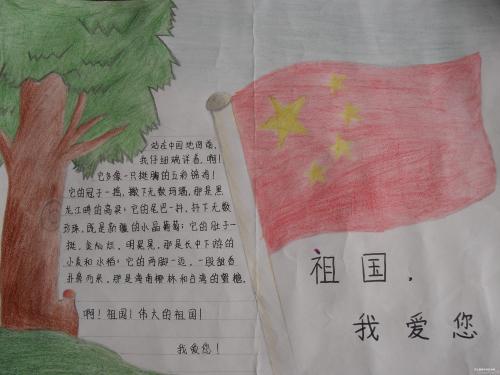 站在中国地图前,
我仔细端详着,啊!
它多像一只挺胸的五彩锦鸡!
它的冠子一摇,撒下无数玛瑙,那是黑
龙江畔的高粱;它的尾巴一抖,抖下无数
珍珠,既是新疆的水晶葡萄;它的肚子一
挺,金灿灿,明晃晃,那是长中下游的
小麦和水稻;它的两脚一迈,一股独香
扑鼻而来,那是海南椰林和台湾的蜜橘。
啊!祖国!伟大的祖国!
我爱您!
祖国,
我爱您